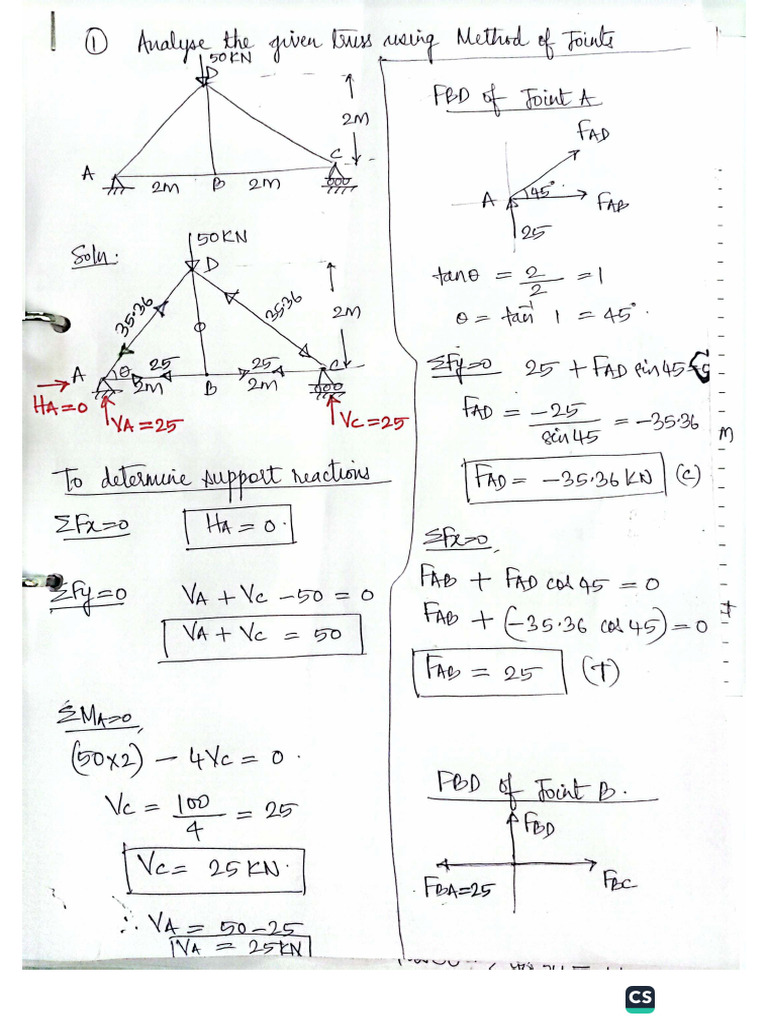 ① Analyse the given truss using Method of Joints
50KN
D
2M
A
C
2M B 2M
Soln.
50KN
D
35.36
35.36
2M
A θ 25 25 C
2M B 2M
HA=0
VA=25
VC=25
To determine support reactions
ΣFx=0 HA = 0.
ΣFy=0 VA + VC - 50 = 0
VA + VC = 50
ΣMA=0,
(50×2) - 4VC = 0.
VC = 100/4 = 25
VC = 25 KN.
∴ VA = 50-25
VA = 25KN
FBD of Joint A
FAD
A 45° FAB
25
tanθ = 2/2 = 1
θ = tan⁻¹ 1 = 45°.
ΣFy=0 25 + FAD sin 45 = 0
FAD = -25/sin 45 = -35.36
FAD = -35.36 KN (C)
ΣFx=0,
FAB + FAD cos 45 = 0
FAB + (-35.36 cos 45) = 0
FAB = 25 (T)
FBD of Joint B.
FBD
FBA=25 FBC
CS